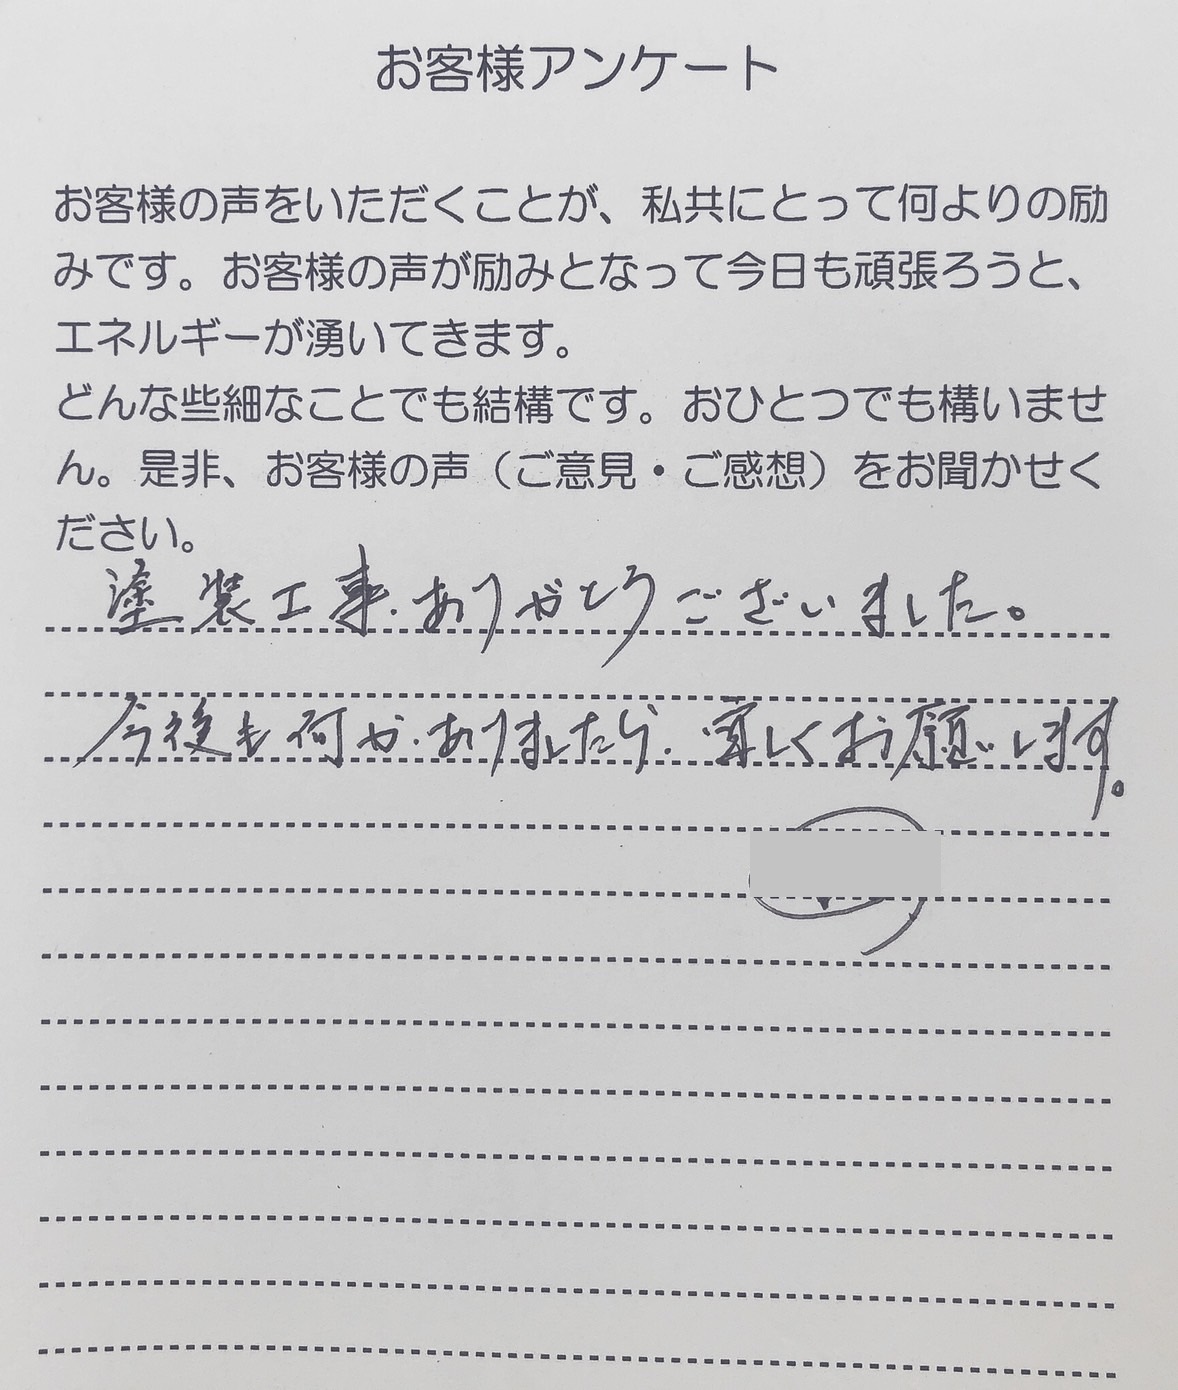 お客様アンケート
お客様の声をいただくことが、私共にとって何よりの励
みです。お客様の声が励みとなって今日も頑張ろうと、
エネルギーが湧いてきます。
どんな些細なことでも結構です。おひとつでも構いませ
ん。是非、お客様の声（ご意見・ご感想）をお聞かせく
ださい。
塗装工事.ありがとうございました。
今後も何か.ありましたら.宜しくお願いします。